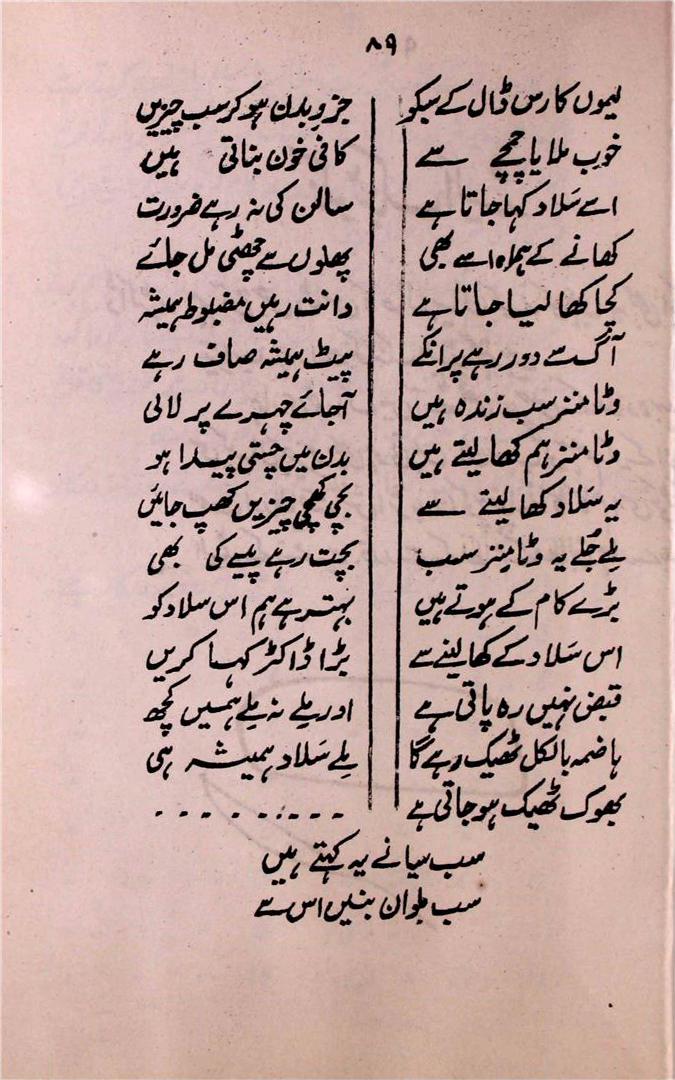 ۸۹
لیموں کا رس ڈال کے سبکو
خوب ملایا چمچے سے
اسے سَلاد کہا جاتا ہے
کھانے کے ہمراہ اسے بھی
کچا کھا لیا جاتا ہے
آگ سے دور رہے پر انکے
وٹامنز سب زندہ ہیں
وٹامنز ہم کھا لیتے ہیں
یہ سَلاد کھا لینے سے
مِلے جُلے یہ وٹامِنز سب
بڑے کام کے ہوتے ہیں
اس سَلاد کے کھا لینے سے
قبض نہیں رہ پاتی ہے
ہاضمہ بالکل ٹھیک رہے گا
بھوک ٹھیک ہو جاتی ہے
جزوِ بدن ہو کر سب چیزیں
کافی خون بناتی ہیں
سالن کی نہ رہے ضرورت
پھلوں سے چھٹی مل جائے
دانت رہیں مضبوط ہمیشہ
پیٹ ہمیشہ صاف رہے
آجائے چہرے پر لالی
بدن میں چستی پیدا ہو
بچی کھچی چیزیں کھپ جائیں
بچت رہے پیسے کی بھی
بہتر ہے ہم اس سلاد کو
بڑا ڈاکٹر کہا کریں
اور ملے نہ ملے ہمیں کچھ
ملے سَلاد ہمیشہ ہی
- - - - - - - - -
سب سیانے یہ کہتے ہیں
سب بلوان بنیں اس سے